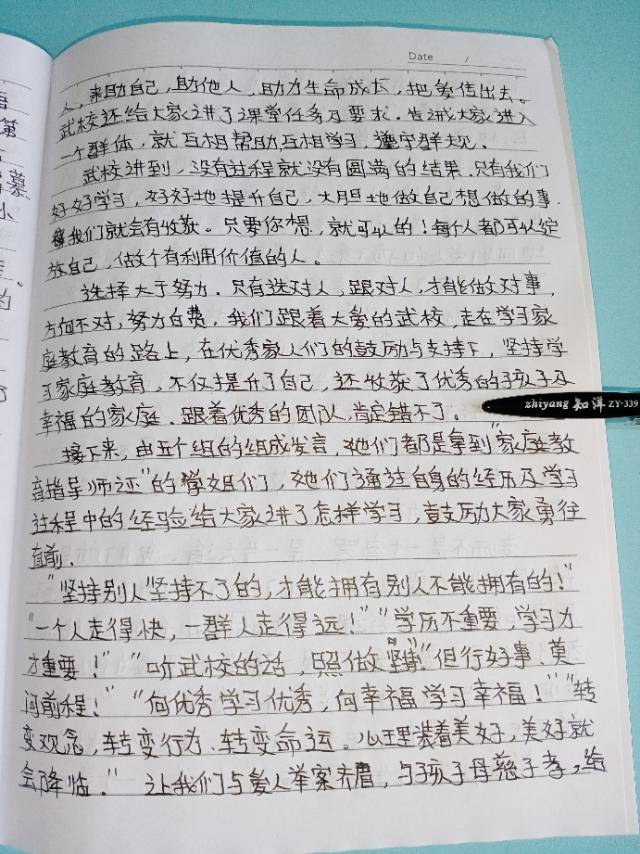 Date /
人，来助自己，助他人，助力生命成长，把爱传出去。
武校还给大家讲了课堂任务及要求．告诫大家进入
一个群体，就互相帮助互相学习，遵守群规．
武校讲到，没有过程就没有圆满的结果．只有我们
好好学习，好好地提升自己，大胆地做自己想做的事．
我们就会有收获。只要你想，就可以的！每个人都可以绽
放自己，做个有利用价值的人。
选择大于努力．只有选对人，跟对人，才能做对事，
方向不对，努力白费，我们跟着大爱的武校，走在学习家
庭教育的路上，在优秀家人们的鼓励与支持下，坚持学
习家庭教育，不仅提升了自己，还收获了优秀的孩子及
幸福的家庭．跟着优秀的团队，肯定错不了。
zhiyang 知洋 ZY-339
接下来，由五个组的组成发言，她们都是拿到"家庭教
育指导师证"的学姐们，她们通过自身的经历及学习
过程中的经验给大家讲了怎样学习，鼓励大家勇往
直前．
"坚持别人坚持不了的，才能拥有别人不能拥有的！"
"一个人走得快，一群人走得远！""学历不重要，学习力
才重要！""听武校的话，照做""但行好事、莫
问前程！""向优秀学习优秀，向幸福学习幸福！""转
变观念，转变行为、转变命运。心里装着美好，美好就
会降临．"让我们与爱人举案齐眉，与孩子母慈子孝，给